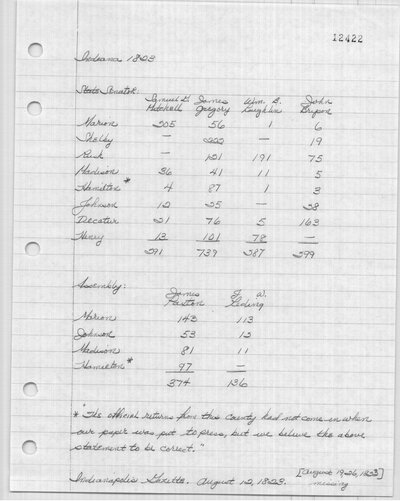 12422
Indiana 1823
State Senator:
Samuel G. James Wm. B. John
Mitchell Gregory Laughlin Bryson
Marion 205 56 1 6
Shelby — 222 — 19
Rush — 121 191 75
Madison 36 41 11 5
Hamilton* 4 87 1 3
Johnson 12 25 — 28
Decatur 21 76 5 163
Henry 13 101 78 —
291 739 287 299
Assembly:
James J. W.
Paxton
Marion 143 113
Johnson 53 12
Madison 81 11
Hamilton* 97 —
374 136
* "The official returns from this county had not come in when
our paper was put to press, but we believe the above
statement to be correct."
Indianapolis Gazette. August 12, 1823. [August 19-26, 1823
missing]